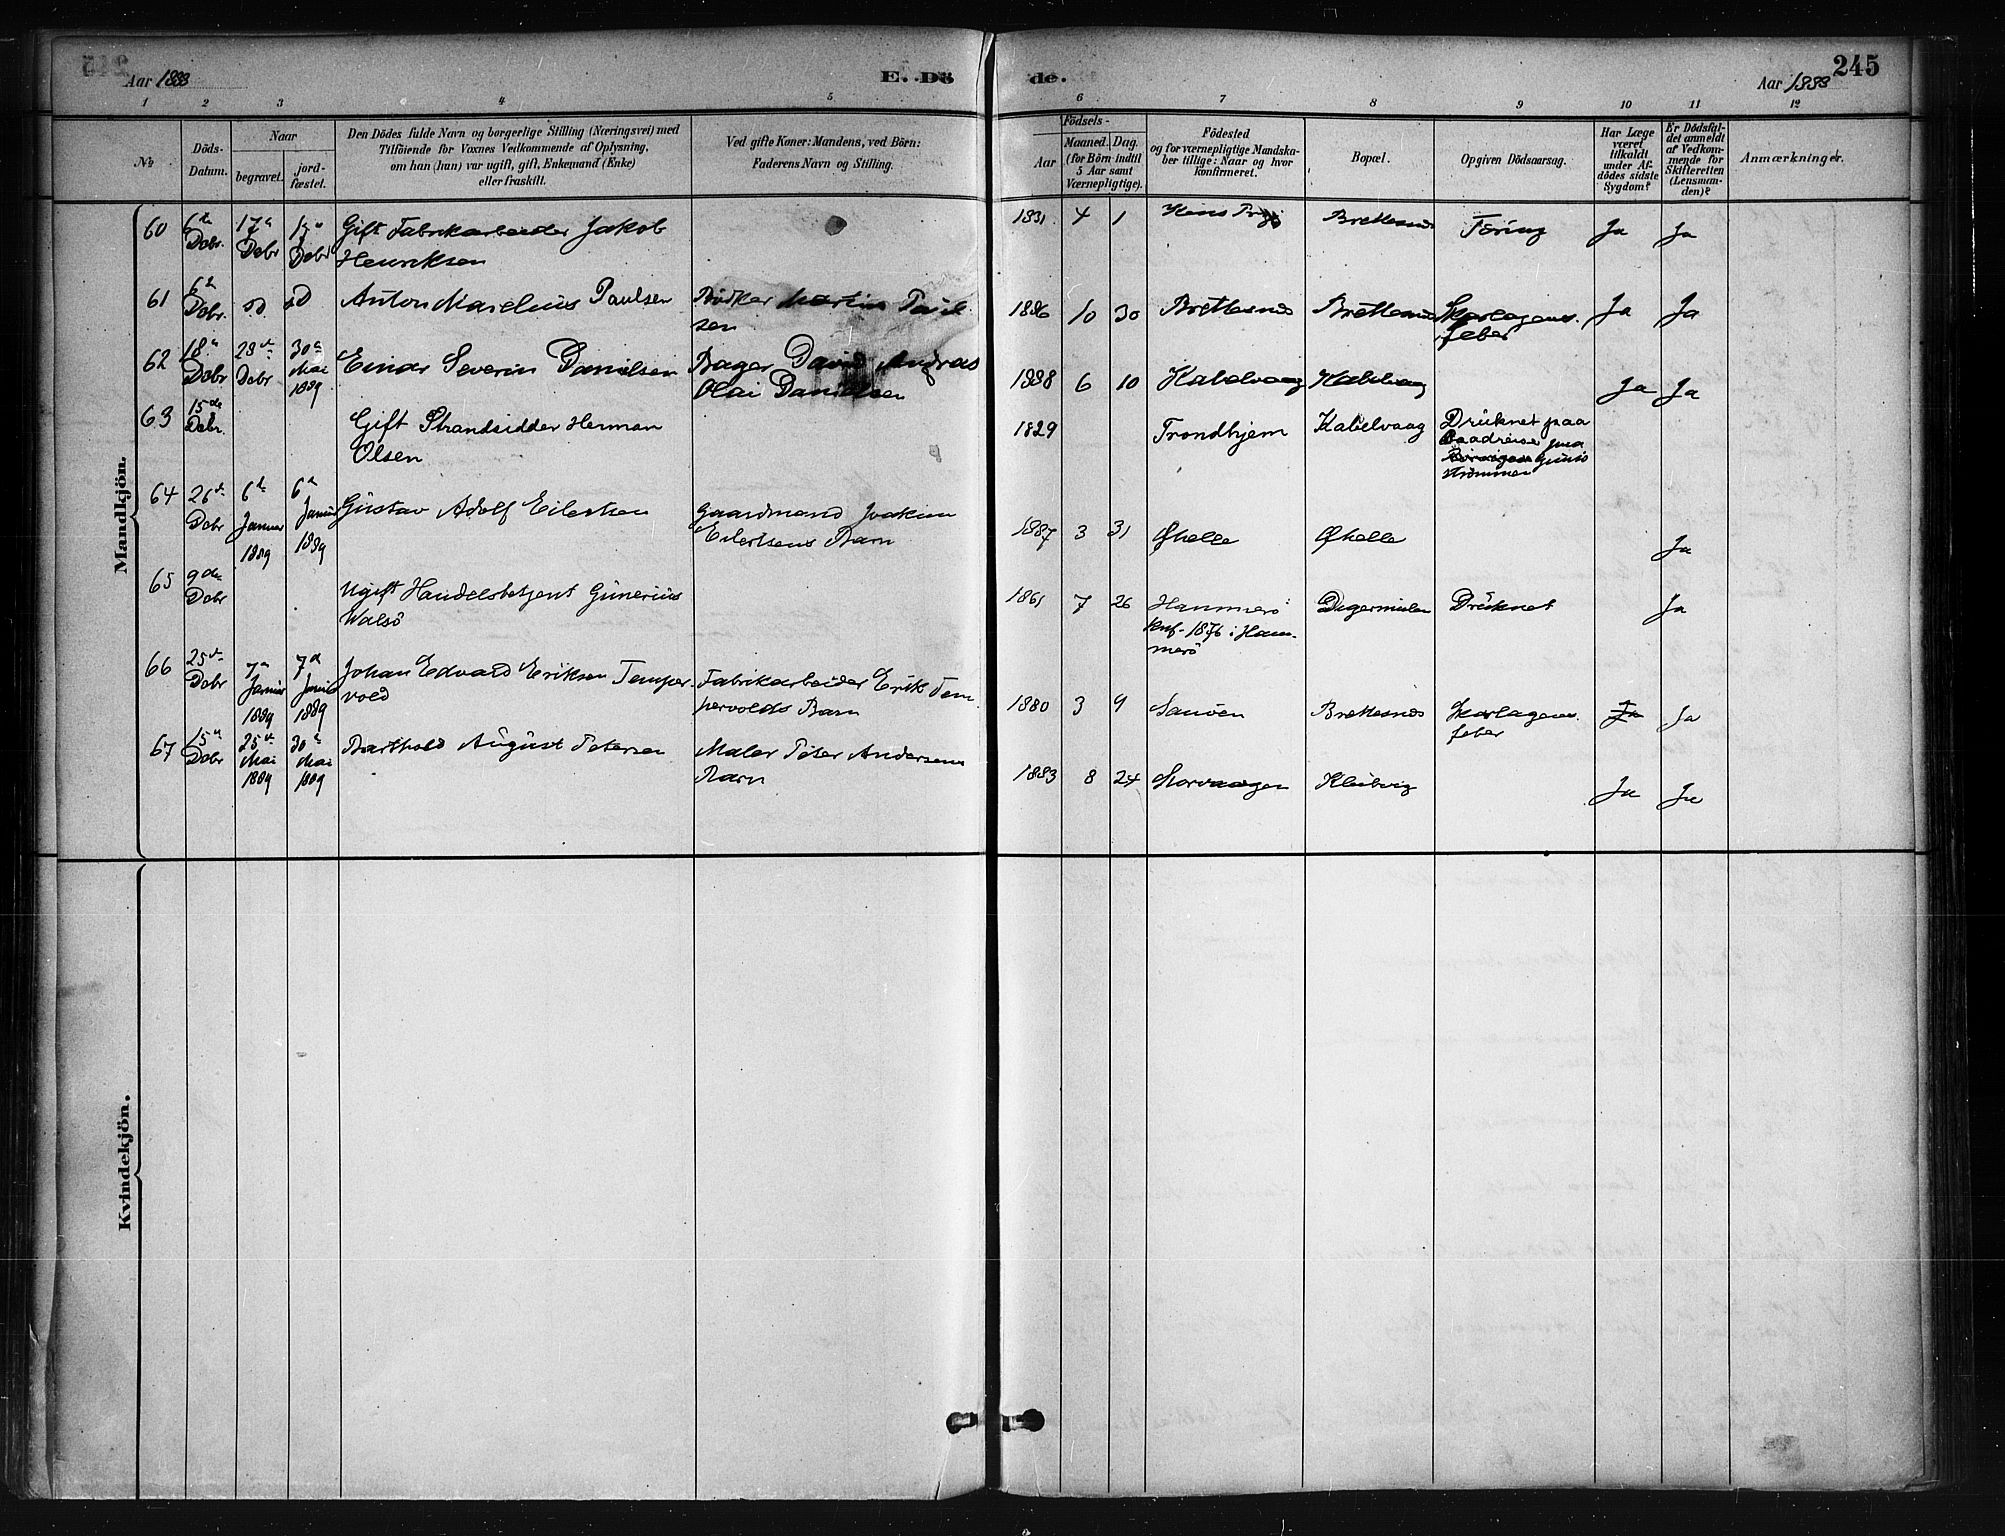 245
Aar 1888
E. Dö de.
Aar 1888
1 2 3 4 5 6 7 8 9 10 11 12
No
Döds-
Datum.
Naar
begravet.
jord-
fæstet.
Den Dödes fulde Navn og borgerlige Stilling (Næringsvei) med
Tilföiende for Voxnes Vedkommende af Oplysning,
om han (hun) var ugift, gift, Enkemand (Enke)
eller fraskilt.
Ved gifte Koner: Mandens, ved Börn:
Faderens Navn og Stilling.
Födsels-
Aar
Maaned. Dag.
(for Börn indtil
5 Aar samt
Værnepligtige).
Födested
og for værnepligtige Mandska-
ber tillige: Naar og hvor
konfirmeret.
Bopæl.
Opgiven Dödsaarsag.
Har Læge
været
tilkaldt
under Af-
dödes sidste
Sygdom?
Er Dödsfal-
det anmeldt
af Vedkom-
mende for
Skifteretten
(Lensman-
den)?
Anmærkninger.
Mandkjön.
60 6te Decbr 17de Decbr 17de Decbr Gift Fabrikarbeider Jakob
Henriksen
1831 4 1 Brettesnes Tæring Ja Ja
61 6te Decbr. sd sd Anton Marelius Paulsen
Bödker Martin Paul
sen
1886 10 30 Brettesnes Brettesnes Skarlagens
feber Ja Ja
62 18de Decbr 28de Decbr 30te Mai 1889 Einar Severin Danielsen
Bager David Andreas
Olai Danielsen
1888 6 10 Kabelvaag Kabelvaag Ja Ja
63 15de Decbr. Gift Strandsidder Herman
Olsen
1829 Trondhjem Kabelvaag Druknet paa
Baadreise paa
Gimsö
strömmen
64 26de Decbr 6te Januar 1889 6te Januar 1889 Gustav Adolf Eilertsen
Gaardmand Joakim
Eilertsens Barn
1887 3 31 Øhelle Øhelle Ja
65 9de Decbr Ugift Handelsbetjent Gunerius
Walsö
1861 7 26 Hammerö
knf. 1876 i Ham-
merö
Digermulen Druknet Ja
66 25de Decbr 7de Januar 1889 7de Januar 1889 Johan Edvard Eriksen Temper-
vold
Fabrikarbeider Erik Tem
pervolds Barn
1880 3 9 Sanöen Brettesnes Skarlagens
feber Ja Ja
67 15de Decbr 25de Mai 1889 30te Mai 1889 Barthold August Petersen
Maler Peter Andersens
Barn
1883 8 24 Storvaagen Kleibvig Ja Ja
Kvindekjön.